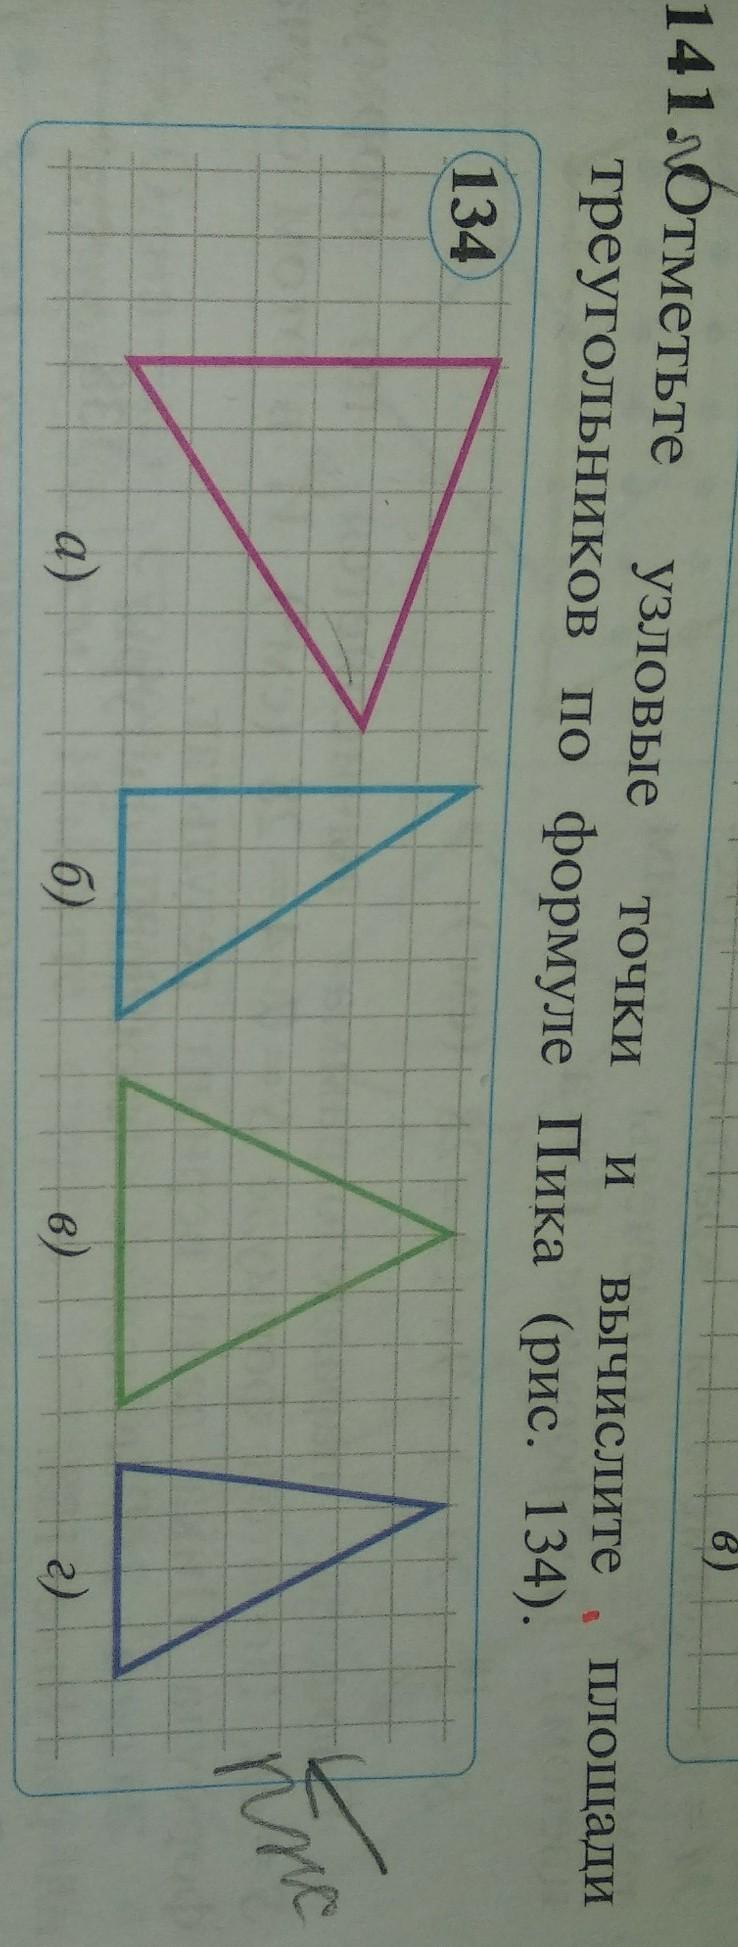 141. Отметьте узловые точки и вычислите площади
треугольников по формуле Пика (рис. 134).
134
а) б) в) г)
в)